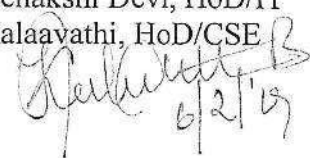 enakshi Devi, HoD/IT
alaavathi, HoD/CSE
6/2/19